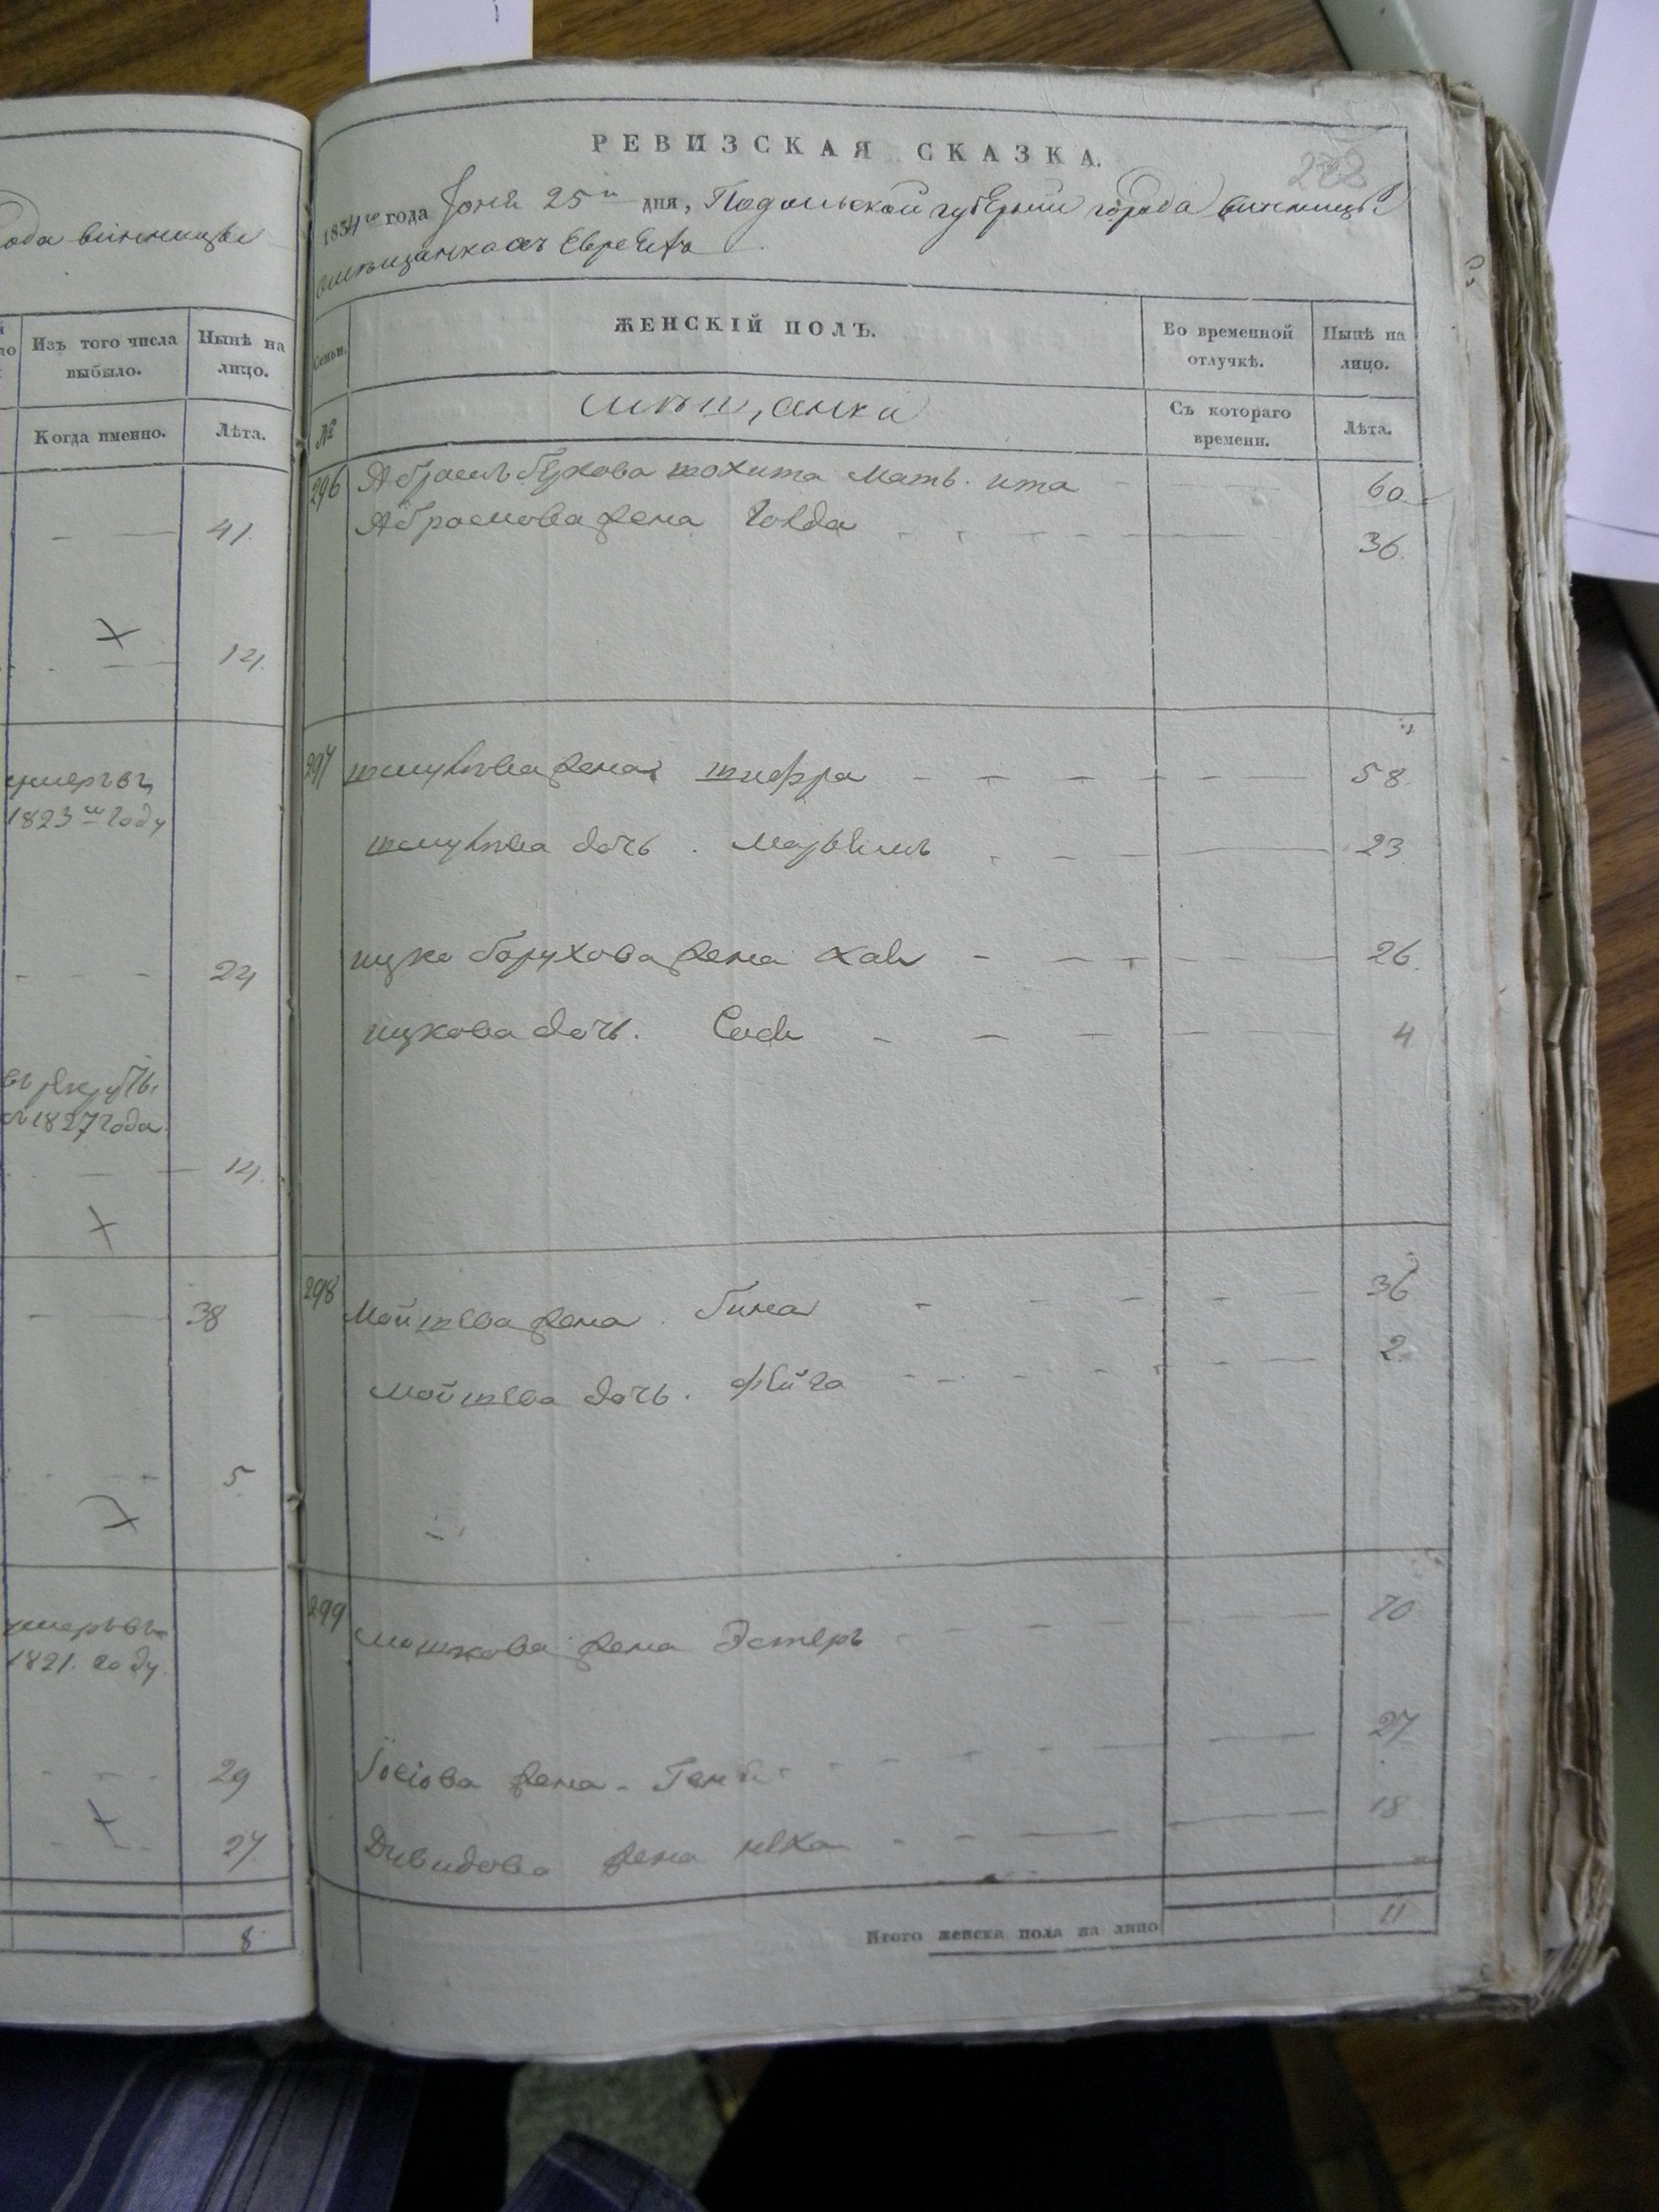 ода винницы
Изъ того числа выбыло.
Нынѣ на лицо.
Когда именно.
Лѣта.
41.
14.
умеръ въ
1823 году
24
въ рекруты
1827 года
14.
38
5
умеръ въ
1821. году.
29
27
8
РЕВИЗСКАЯ СКАЗКА.
1834го года Іюня 25го дня, Подольской губерніи города винницы
мѣщанкахъ Евреяхъ
Семьи.
ЖЕНСКІЙ ПОЛЪ.
Во временной отлучкѣ.
Нынѣ на лицо.
№
мѣщанки
Съ котораго времени.
Лѣта.
296 мать. ита 60
Абрамова жена Голда 36.
297 шмулѣва жена шифра 58.
шмулѣва дочь. 23
ицко борухова жена хая 26.
ицкова дочь. 4
298 Мойшева жена 36
мойшева дочь. фейга 2.
299 мошкова жена Эстеръ 70
Іосіова жена 27
Давидова жена 18
Итого женска пола на лицо 11